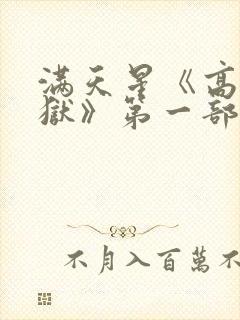 满天星《高
獄》第一部
不月入百萬不